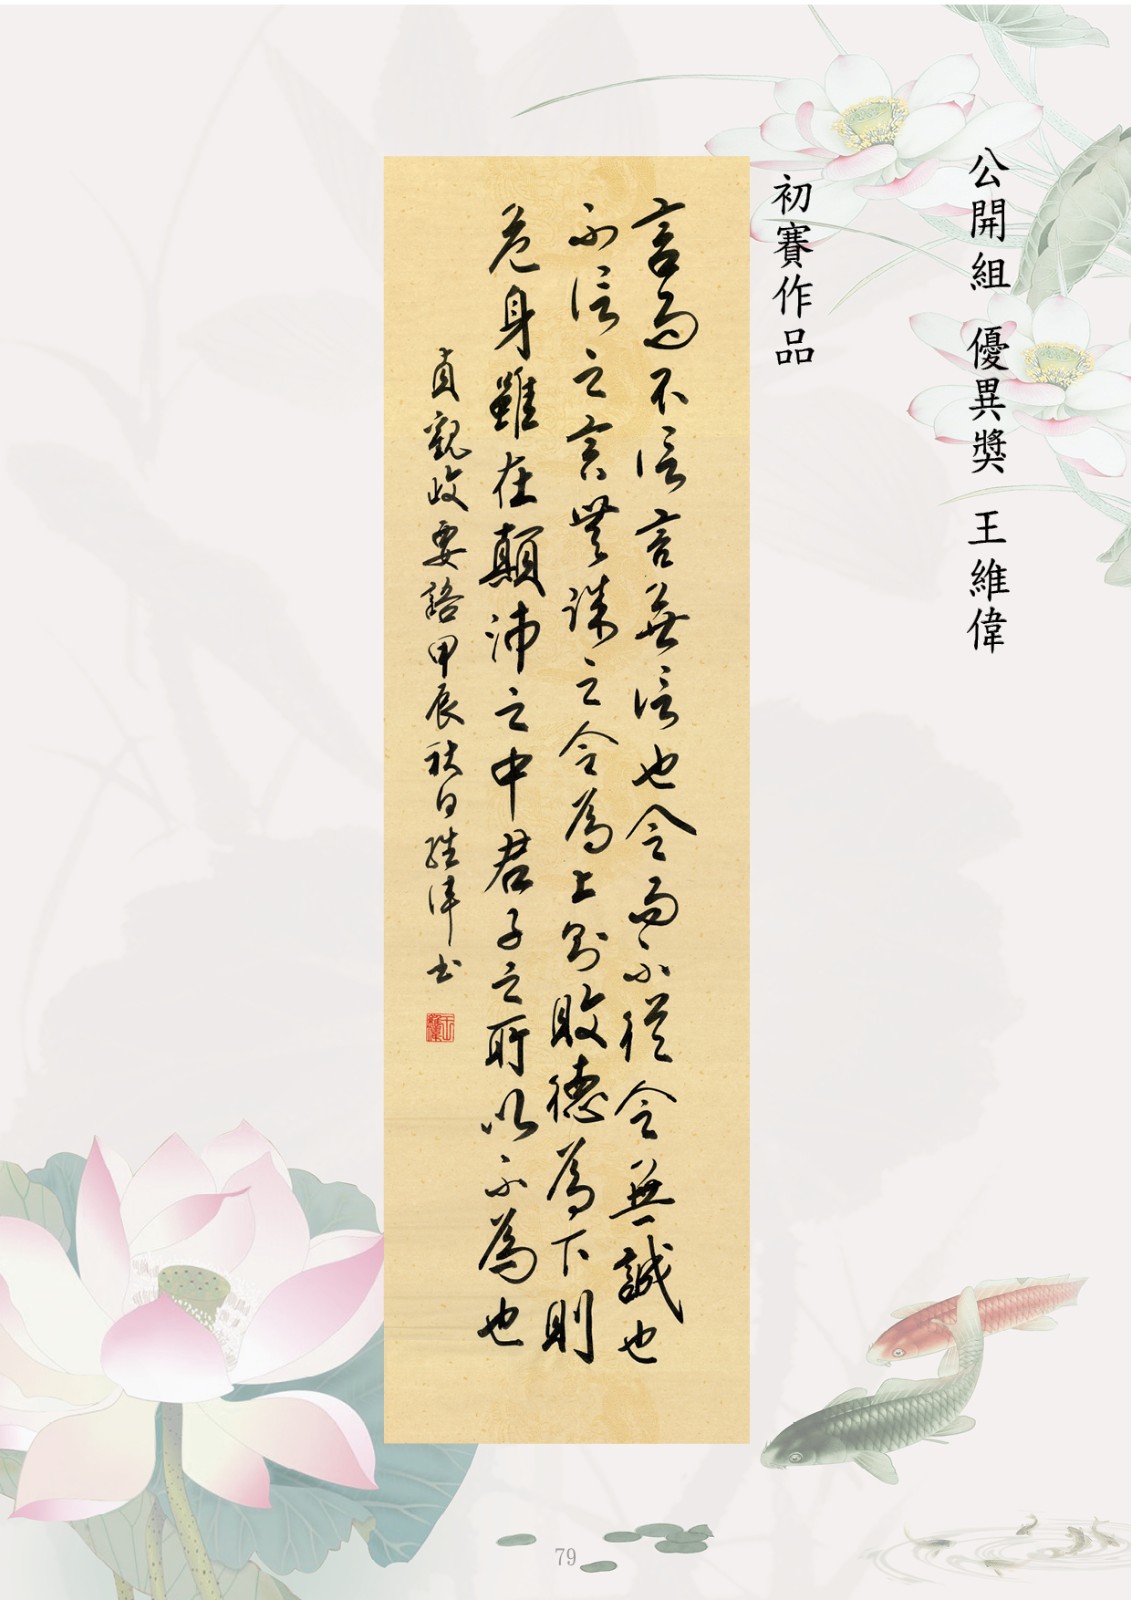 公開組 優異獎 王維偉
初賽作品
言而不信言無信也令而不從令無誠也
不信之言無誠之令為上則敗德為下則
危身雖在顛沛之中君子之所以不為也
貞觀政要語甲辰秋日維偉書
79